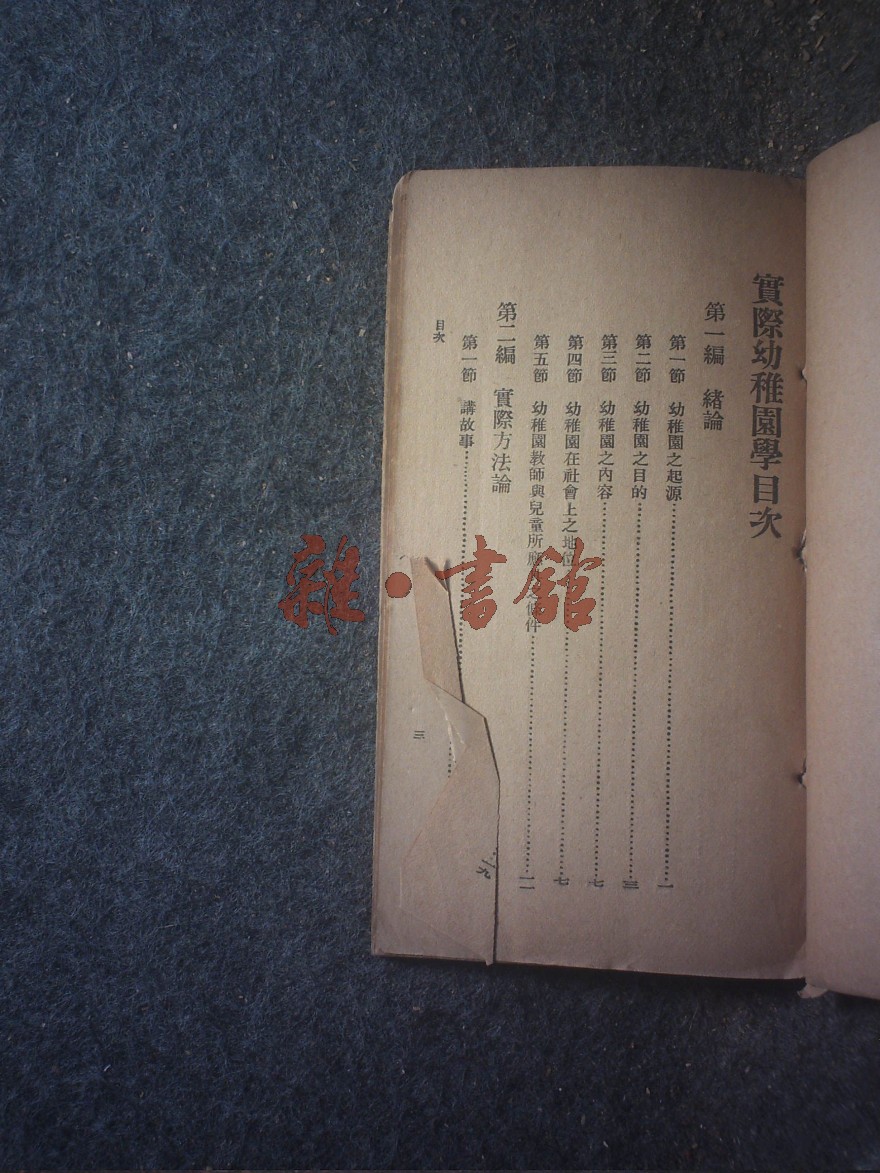 實際幼稚園學目次
第一編 緒論
第一節 幼稚園之起源……一
第二節 幼稚園之目的……三
第三節 幼稚園之內容……七
第四節 幼稚園在社會上之地位……七
第五節 幼稚園教師與兒童所應 之條件……一一
第二編 實際方法論
第一節 講故事……一九
目次
三
雜·書館